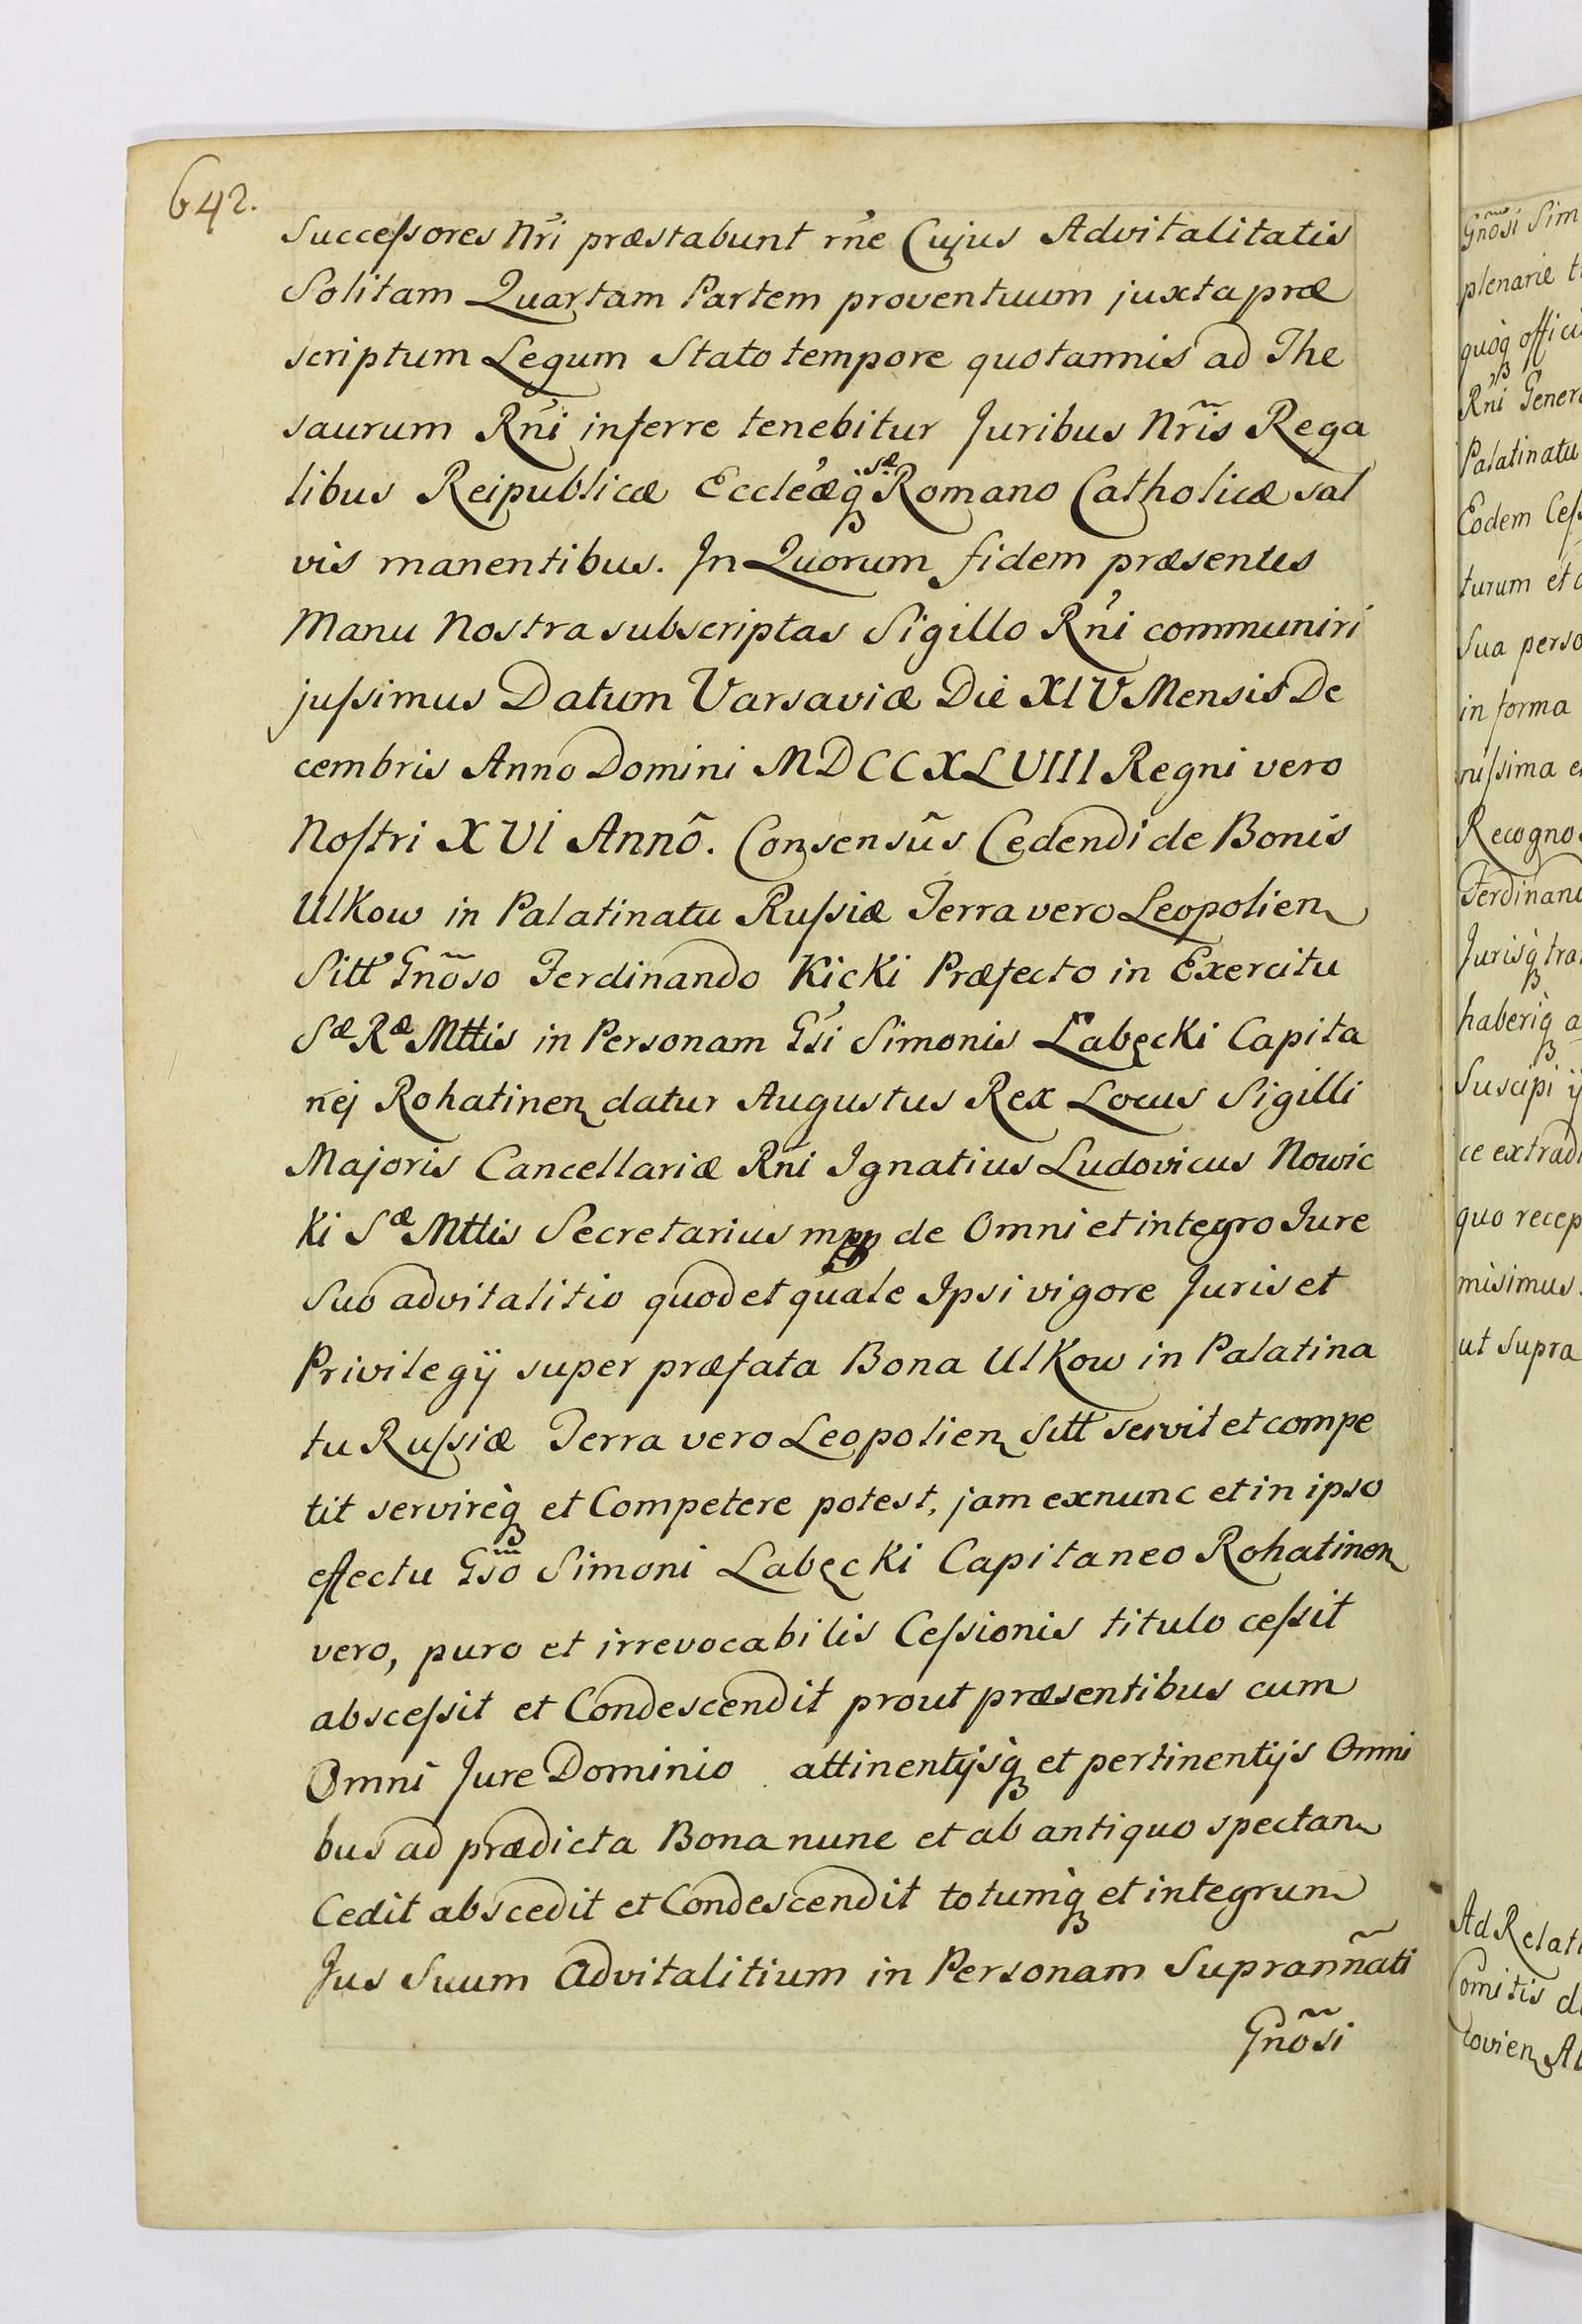 642.
Successores Nri præstabunt rñe Cujus Advitalitatis
Solitam Quartam Partem proventuum juxta præ
scriptum Legum Stato tempore quotannis ad The
saurum Rñi inferre tenebitur Juribus Nr̃is Rega
libus Reipublicæ Eccleæq́ Sæ Romano Catholicæ sal
vis manentibus. In Quorum fidem præsentes
Manu Nostra subscriptas Sigillo Rñi communiri
jussimus Datum Varsaviæ Die XIV Mensis De
cembris Anno Domini MDCCXLVIII Regni vero
Nostri XVI Annõ. Consensũs Cedendi de Bonis
Ulkow in Palatinatu Russiæ Terra vero Leopolien
Sitt Gnõso Ferdinando Kicki Præfecto in Exercitu
Sæ Ræ Mttis in Personam Gsi Simonis Łabęcki Capita
nej Rohatinen datur Augustus Rex Locus Sigilli
Majoris Cancellariæ Rñi Ignatius Ludovicus Nowic
ki Sæ Mttis Secretarius mpp de Omni et integro Jure
Suo advitalitio quod et quale Ipsi vigore Juris et
Privilegÿ super præfata Bona Ulkow in Palatina
tu Russiæ Terra vero Leopolien Sitt servit et compe
tit servireq́ et Competere potest, jam exnunc et in ipso
effectu Gso Simoni Łabęcki Capitaneo Rohatinen
vero, puro et irrevocabilis Cessionis titulo cessit
abscessit et Condescendit prout præsentibus cum
Omni Jure Dominio attinentijsq́ et pertinentijs Omni
bus ad prædicta Bona nunc et ab antiquo spectan
Cedit abscedit et Condescendit totumq́ et integrum
Jus Suum Advitalitium in Personam Suprann̄ati
Gnõsi
Gnõsi Sim
plenarie t
quoq́ offici
Rñi Gener
Palatinatu
Eodem Ces
turum et
Sua perso
in forma
nissima e
Recogno
Ferdinan
Jurisq́ tra
haberiq́ a
Suscipi ij
ce extradi
quo recep
misimus.
ut Supra
Ad Relati
Comitis d
covien Al